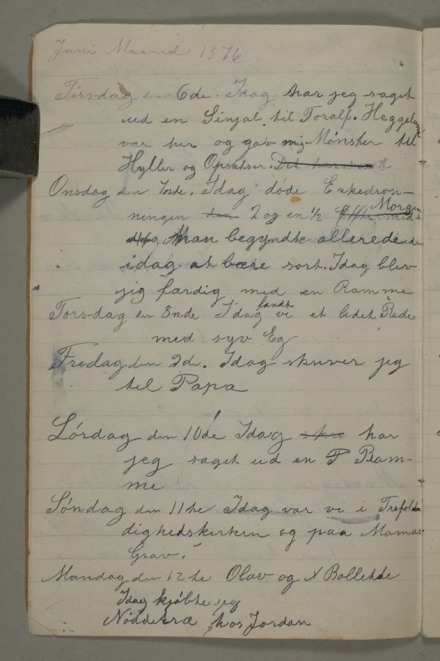 Juni Maaned 1876
Tirsdag den 6de. Idag har jeg saget
ud en Sinjal til Toralf. Heggelund
var her og gav mig Mønster til
Hyller og Opsatser. Det har
Onsdag den 7de. Idag døde Enkedron-
ningen den 2 og en ½ Eftermid- Morgen
dag Man begyndte allerede
idag at bære sort. Idag blev
jeg færdig med en Ramme
Torsdag den 8nde Idag fandt vi et lidet Rede
med syv Eg
Fredag den 9d. Idag skriver jeg
til Papa
Lørdag den 10de Idag har
jeg saget ud en Ram-
me
Søndag den 11te Idag var vi i Trefol-
dighedskirken og paa Mamas
Grav.
Mandag den 12te Olav og N Bolletde
Idag kjøbte jeg
Nøddetræ hos Jordan